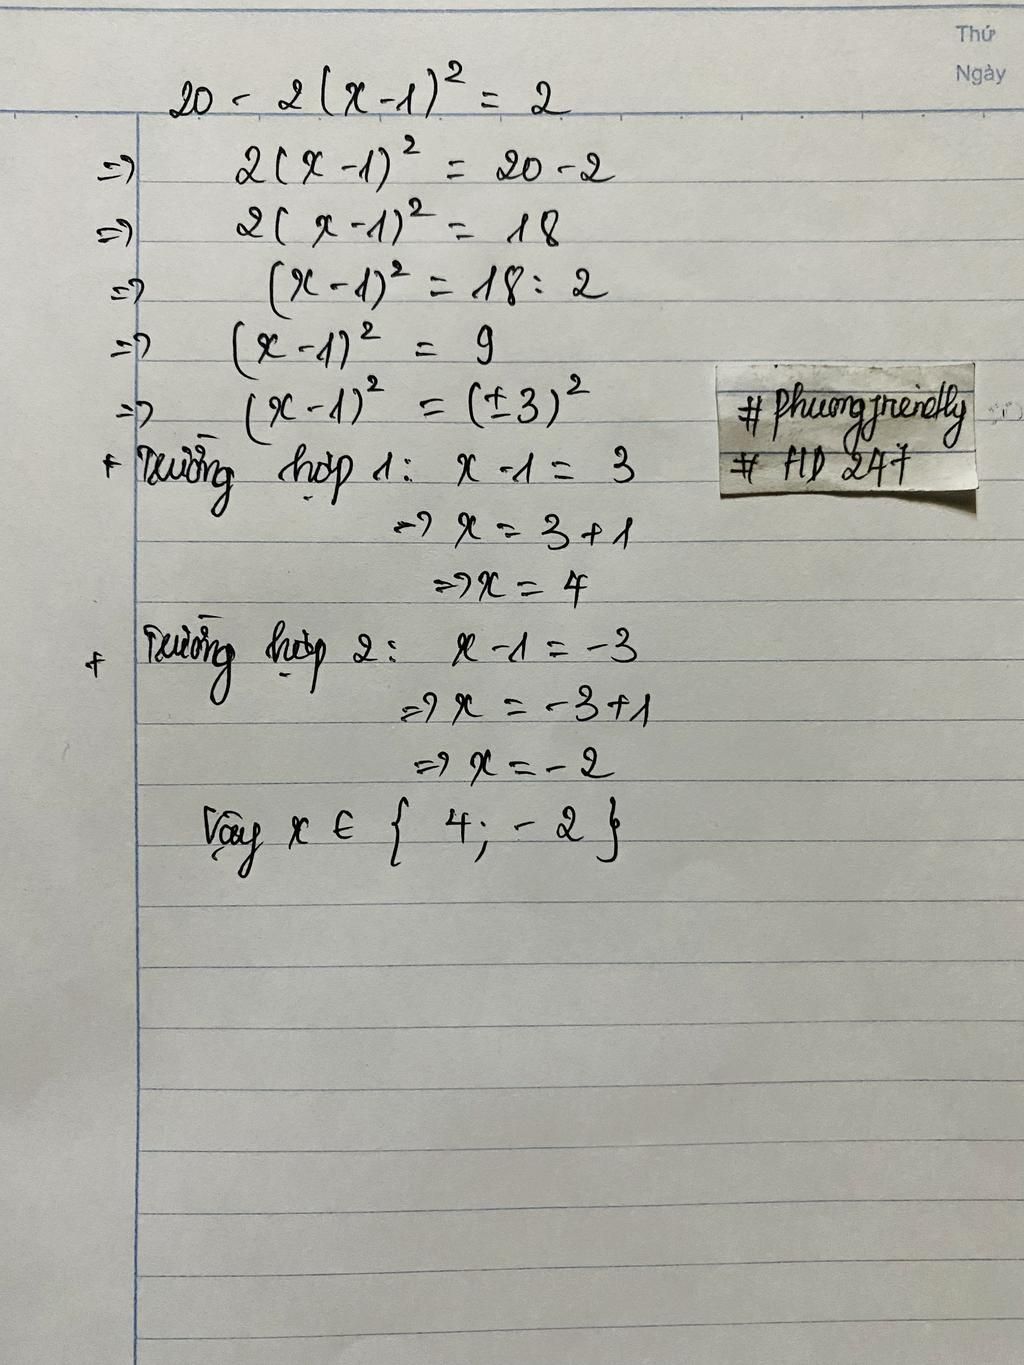 Thứ
Ngày
20 - 2(x-1)² = 2
=> 2(x-1)² = 20-2
=> 2(x-1)² = 18
=> (x-1)² = 18: 2
=> (x-1)² = 9
=> (x-1)² = (±3)²
# phuongfriendly
# HD 247
+ Trường hợp 1: x-1 = 3
=> x = 3+1
=> x = 4
+ Trường hợp 2: x-1 = -3
=> x = -3+1
=> x = -2
Vậy x ∈ { 4; -2 }